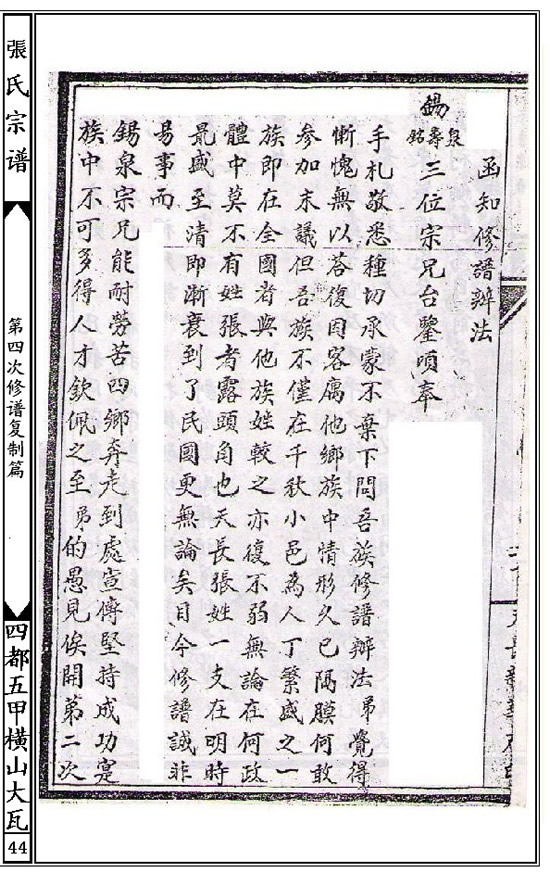 函知修譜辦法
錫泉壽銘三位宗兄台鑒頃奉
手札敬悉種切承蒙不棄下問吾族修譜辦法弟覺得
慚愧無以荅復因客寓他鄉族中情形久已隔膜何敢
參加末議但吾族不僅在千秋小邑為人丁繁盛之一
族即在全國者與他族姓較之亦復不弱無論在何政
體中莫不有姓張者露頭角也天長張姓一支在明時
最盛至清即漸衰到了民國更無論矣目今修譜誠非
易事而
錫泉宗兄能耐勞苦四鄉奔走到處宣傳堅持成功寔
族中不可多得人才欽佩之至弟的愚見俟開第二次
張氏宗谱
第四次修谱复制篇
四都五甲横山大瓦
44